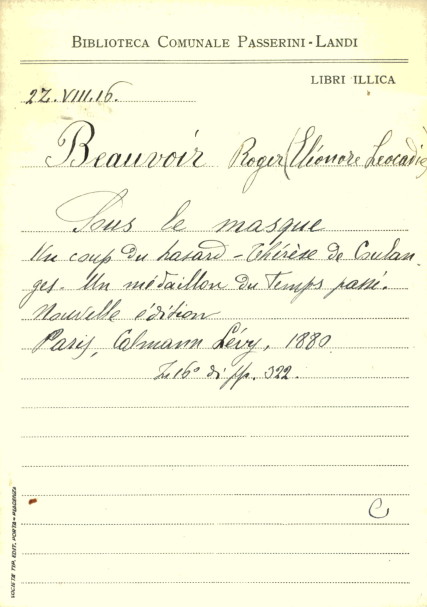 BIBLIOTECA COMUNALE PASSERINI-LANDI
LIBRI ILLICA
22.VIII.16.
Beauvoir Roger (Eléonore Leocadie
Sous le masque
Un coup du hasard - Thérèse de Coulan-
ges. Un médaillon du Temps passé.
Nouvelle édition
Paris, Calmann Lévy, 1880
In 16° di pp. 322.
C
SOCIETÀ TIP. EDIT. PORTA - PIACENZA